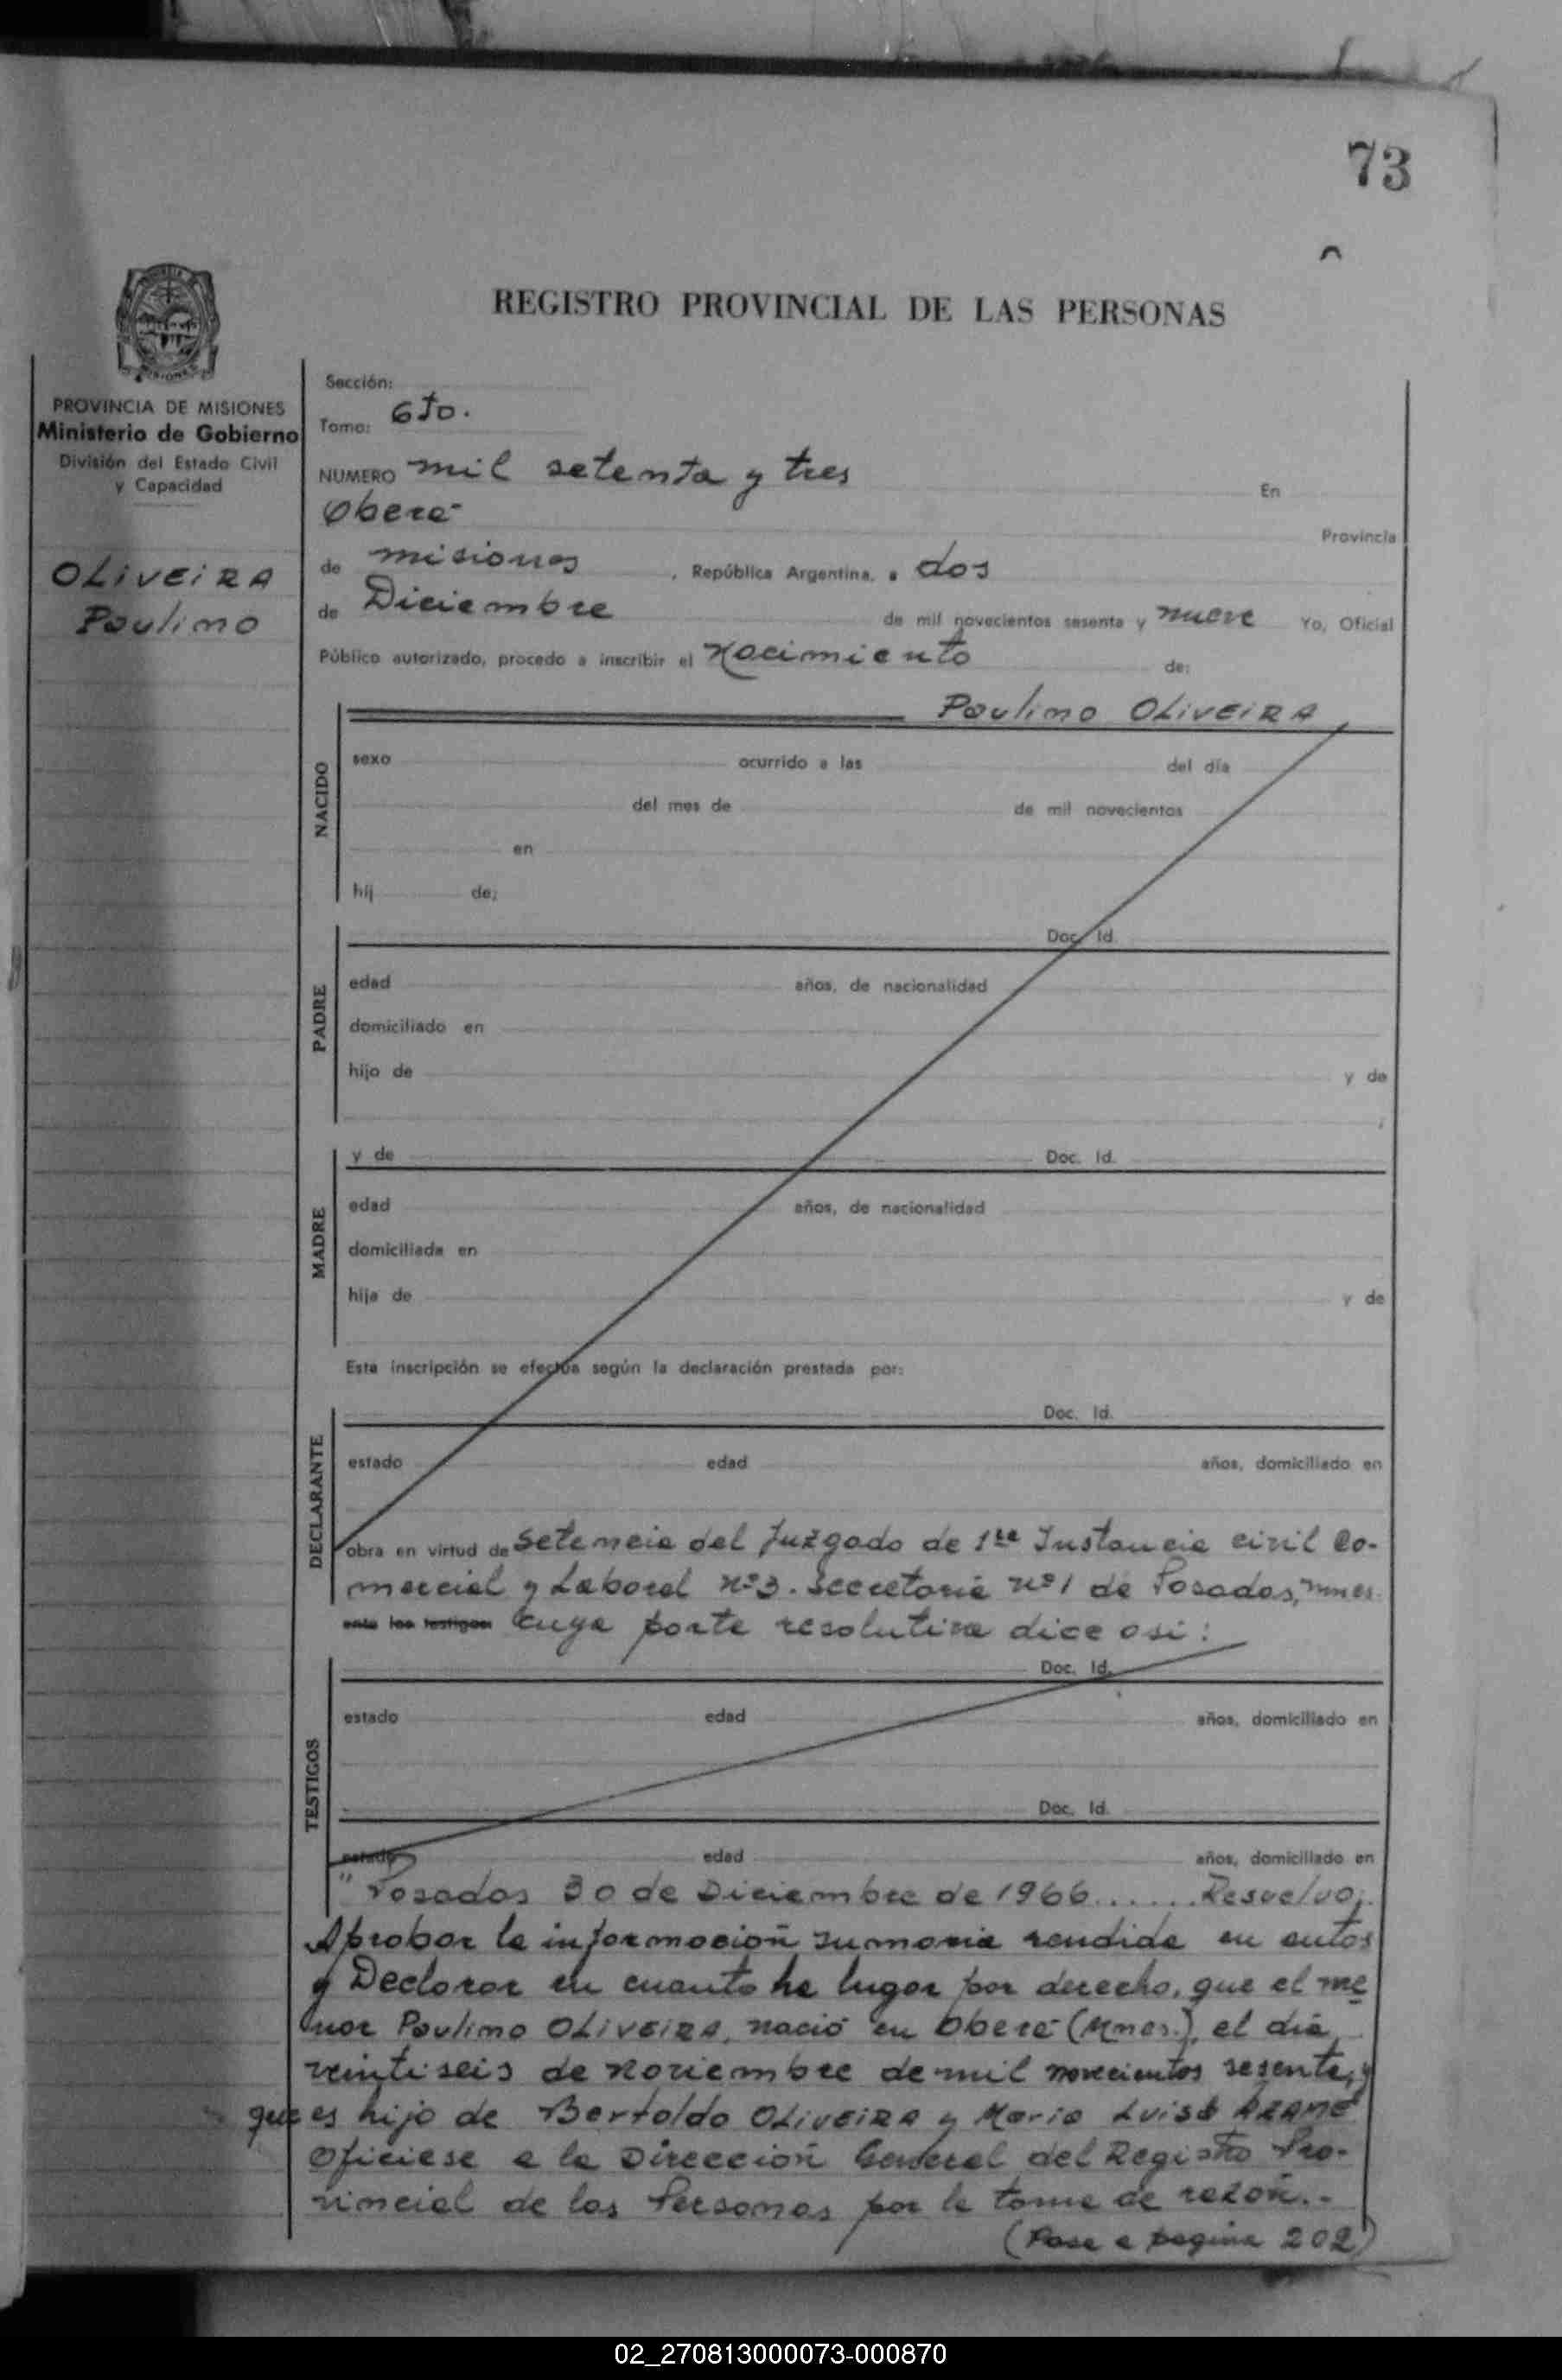 73
REGISTRO PROVINCIAL DE LAS PERSONAS
PROVINCIA DE MISIONES
Ministerio de Gobierno
División del Estado Civil
y Capacidad
OLIVEIRA
Paulino
Sección:
Tomo: 6to.
NUMERO mil setenta y tres En
Oberá Provincia
de misiones , República Argentina, a dos
de Diciembre de mil novecientos sesenta y nueve Yo, Oficial
Público autorizado, procedo a inscribir el Nacimiento de:
Paulino OLIVEIRA
NACIDO
sexo ocurrido a las del día
del mes de de mil novecientos
en
hij de;
PADRE
Doc. Id.
edad años, de nacionalidad
domiciliado en
hijo de y de
;
MADRE
y de Doc. Id.
edad años, de nacionalidad
domiciliada en
hija de y de
Esta inscripción se efectúa según la declaración prestada por:
DECLARANTE
Doc. Id.
estado edad años, domiciliado en
obra en virtud de setencia del Juzgado de 1ra Instancia civil Co-
mercial y Laboral nº3. Secretaria nº1 de Posadas, mnes.
ante los testigos: cuya parte resolutiva dice asi:
TESTIGOS
Doc. Id.
estado edad años, domiciliado en
Doc. Id.
estado edad años, domiciliado en
" Posadas 30 de Diciembre de 1966...... Resuelvo:
Aprobar la información sumaria rendida en autos
y Declarar en cuanto ha lugar por derecho, que el me
nor Paulino OLIVEIRA, nació en Oberá (Mnes.), el día
veintiseis de noviembre de mil novecientos sesenta, y
que es hijo de Bertoldo OLIVEIRA y Maria Luisa ARAME
Ofíciese a la Dirección General del Registro Pro-
vincial de las Personas por la toma de razón.-
(Pasa a pagina 202)
02_270813000073-000870